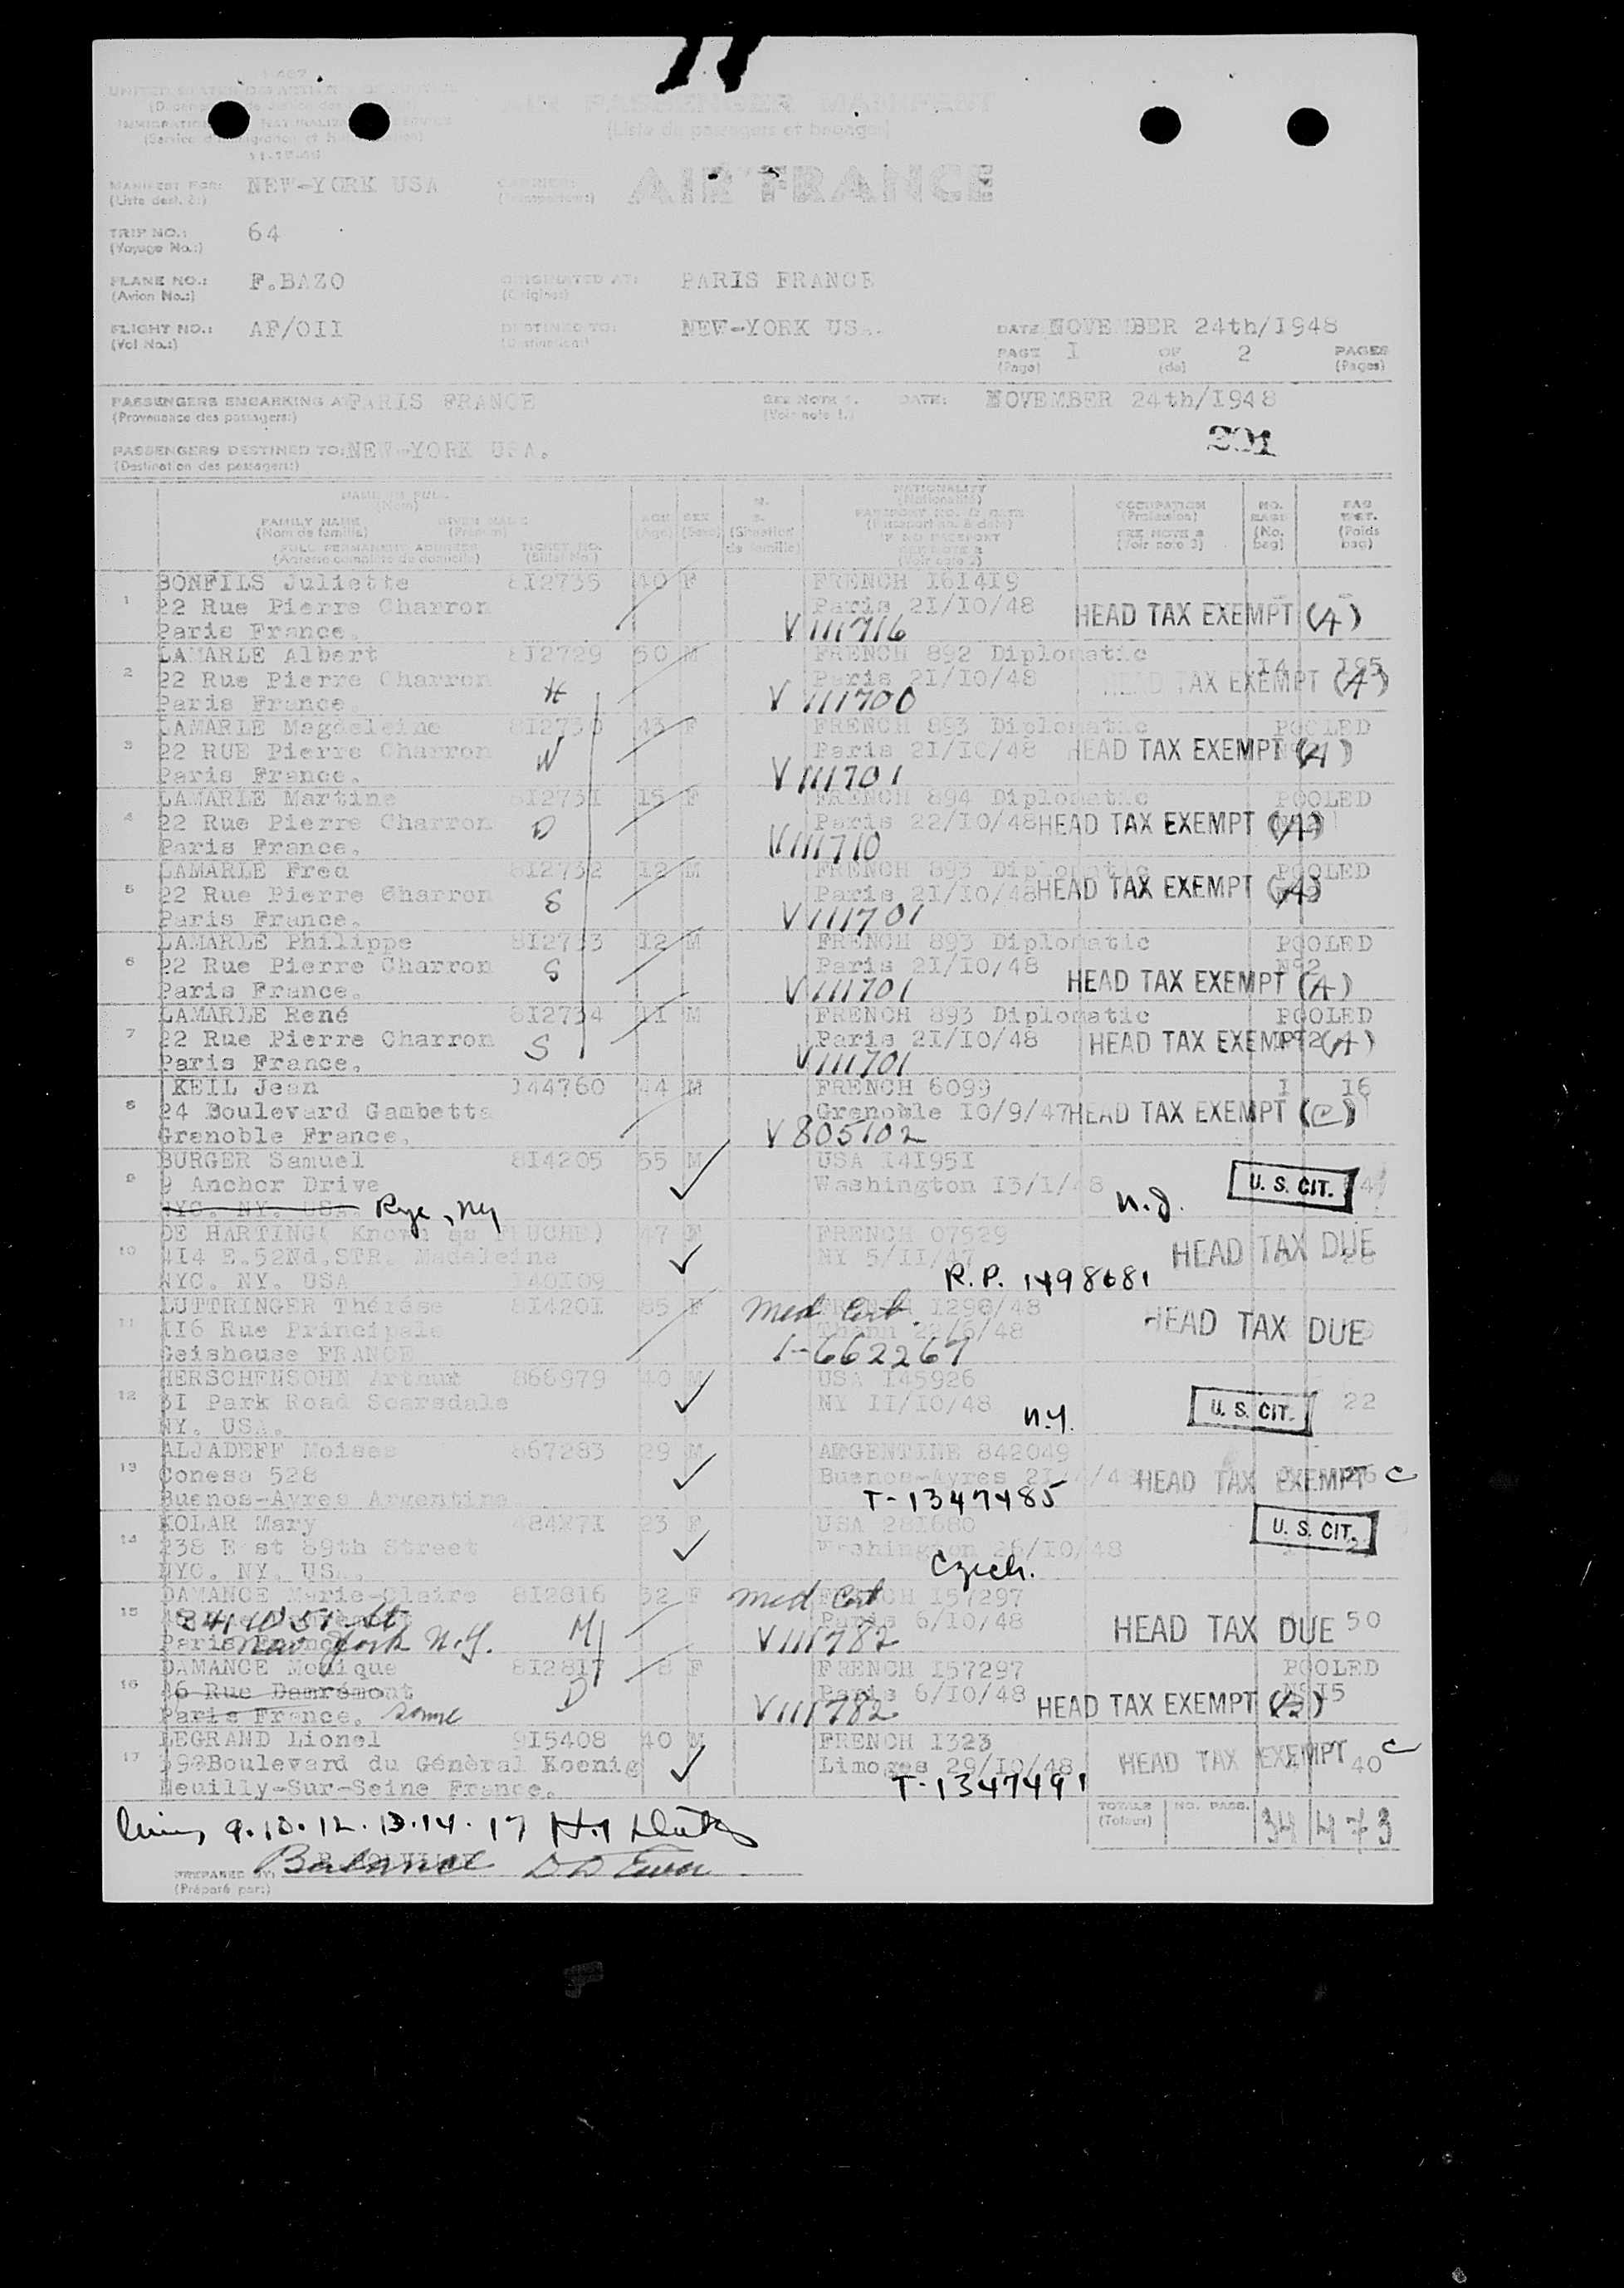 I-487
UNITED STATES DEPARTMENT OF JUSTICE
IMMIGRATION NATURALIZATION SERVICE
AIR PASSENGER MANIFEST
(Liste de passagers et bagages)
MANIFEST FOR: NEW-YORK USA
(Liste dest. à:)
CARRIER: AIR FRANCE
(Transporteur:)
TRIP NO.: 64
(Voyage No.:)
PLANE NO.: F.BAZO
(Avion No.:)
ORIGINATED AT: PARIS FRANCE
(Origine:)
FLIGHT NO.: AF/OII
(Vol No.:)
DESTINED TO: NEW-YORK USA.
(Destination:)
DATE NOVEMBER 24th/I948
PAGE I OF 2 PAGES
(Page) (de) (Pages)
PASSENGERS EMBARKING AT PARIS FRANCE
(Provenance des passagers:)
SEE NOTE 1. DATE: NOVEMBER 24th/I948
(Voir note 1.)
201
PASSENGERS DESTINED TO: NEW-YORK USA.
(Destination des passagers:)
NAME IN FULL
(Nom)
FAMILY NAME GIVEN NAME
(Nom de famille) (Prénom)
FULL PERMANENT ADDRESS TICKET NO.
(Adresse complète de domicile) (Billet No.)
AGE SEX
(Age) (Sexe)
M. S.
(Situation de famille)
NATIONALITY
(Nationalité)
PASSPORT NO. & DATE
(Passeport no. & date)
IF NO PASSPORT
SEE NOTE 2
(Voir note 2)
OCCUPATION
(Profession)
SEE NOTE 3
(Voir note 3)
NO. BAGS
(No. bag)
BAG WGT.
(Poids bag)
1 BONFILS Juliette 8I2735 40 F FRENCH I6I4I9
22 Rue Pierre Charron Paris 2I/I0/48 HEAD TAX EXEMPT (A)
Paris France. V 111716
2 LAMARLE Albert 8I2729 50 M FRENCH 892 Diplomatic I4 I95
22 Rue Pierre Charron H Paris 2I/I0/48 HEAD TAX EXEMPT (A)
Paris France. V 111700
3 LAMARLE Magdeleine 8I2730 43 F FRENCH 893 Diplomatic POOLED
22 RUE Pierre Charron W Paris 2I/I0/48 HEAD TAX EXEMPT (A)
Paris France. V 111701
4 LAMARLE Martine 8I273I I5 F FRENCH 894 Diplomatic POOLED
22 Rue Pierre Charron D Paris 22/I0/48 HEAD TAX EXEMPT (A)
Paris France. V 111710
5 LAMARLE Fred 8I2732 I2 M FRENCH 893 Diplomatic POOLED
22 Rue Pierre Charron S Paris 2I/I0/48 HEAD TAX EXEMPT (A)
Paris France. V 111701
6 LAMARLE Philippe 8I2733 I2 M FRENCH 893 Diplomatic POOLED
22 Rue Pierre Charron S Paris 2I/I0/48 N°2
Paris France. V 111701 HEAD TAX EXEMPT (A)
7 LAMARLE René 8I2734 II M FRENCH 893 Diplomatic POOLED
22 Rue Pierre Charron S Paris 2I/I0/48 HEAD TAX EXEMPT (A) N°2
Paris France. V 111701
8 KEIL Jean I44760 44 M FRENCH 6099 I I6
24 Boulevard Gambetta Grenoble I0/9/47 HEAD TAX EXEMPT (C)
Grenoble France. V 805102
9 BURGER Samuel 8I4205 55 M USA I4I95I
9 Anchor Drive Washington I3/I/48 U. S. CIT.
NYC. NY. USA Rye, Ny N.J.
10 DE HARTING( Known as PLUCHE) 47 F FRENCH 07529
4I4 E.52Nd.STR. Madeleine NY 5/II/47 HEAD TAX DUE 28
NYC. NY. USA I40I09 R.P. 1498681
11 LUTTRINGER Thérèse 8I420I 65 F Med Cert. FRENCH I296/48
II6 Rue Principale Thann 22/6/48 HEAD TAX DUE
Geishouse FRANCE I-662267
12 HERSCHENSOHN Arthur 866979 40 M USA I45926
3I Park Road Scarsdale NY II/I0/48 U. S. CIT. 22
NY. USA. N.Y.
13 ALJADEFF Moises 867283 29 M ARGENTINE 842049
Conesa 528 Buenos-Ayres HEAD TAX EXEMPT C
Buenos-Ayres Argentine T-1347485
14 KOLAR Mary 23 F USA 28I680 U. S. CIT.
238 East 89th Street Washington 26/I0/48
NYC. NY. USA. Czech.
15 DAMANCE Marie-Claire 8I2816 32 F Med Cert FRENCH I57297
341 W 51 St. Paris 6/I0/48 HEAD TAX DUE 50
Paris France New York N.Y. M V 111782
16 DAMANCE Monique 8I28I7 8 F FRENCH I57297 POOLED
46 Rue Damrémont D Paris 6/I0/48 N°I5
Paris France. Same V 111782 HEAD TAX EXEMPT
17 LEGRAND Lionel 9I5408 40 M FRENCH I323
Boulevard du Général Koenig Limoges 29/I0/48 HEAD TAX EXEMPT C 40
Neuilly-Sur-Seine France. T-1347491
9.10.12.13.14.17
TOTALS NO. PASS. 34 473
(Totaux)
PREPARED BY: Balance
(Préparé par:)